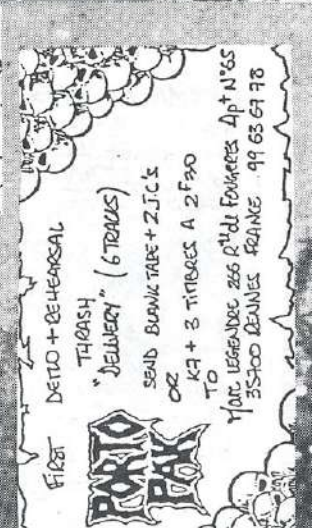 FIRST DEMO + REHEARSAL
THRASH
"DELIVERY" (6 TRACKS)
SEND BLANK TAPE + 2 I.R.C's
OR
K7 + 3 TIMBRES A 2F30
TO
Marc LEGENDRE 266 Rte de FOUGERES Apt N°65
35700 RENNES FRANCE 99 63 67 78
PORTO
BAK